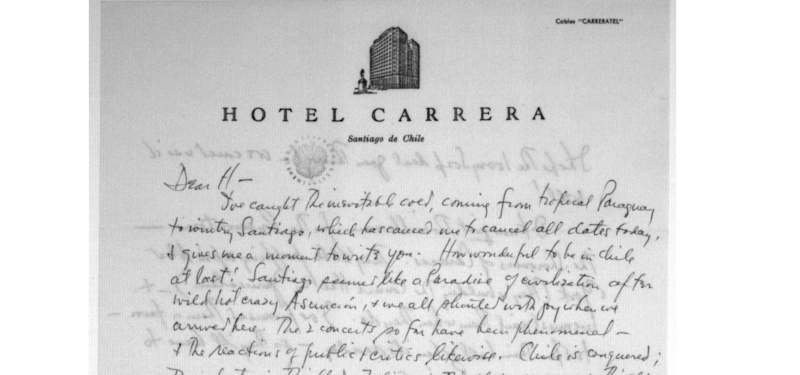 Cables "CARRERATEL"
HOTEL CARRERA
Santiago de Chile
Dear H—
I've caught the inevitable cold, coming from tropical Paraguay
to wintry Santiago, which has caused me to cancel all dates today,
& gives me a moment to write you. How wonderful to be in Chile
at last! Santiago seems like a Paradise of civilization after
wild hot crazy Asunción, & we all shouted with joy when we
arrived here. The 2 concerts so far have been phenomenal —
& the reactions of public & critics likewise. Chile is conquered;